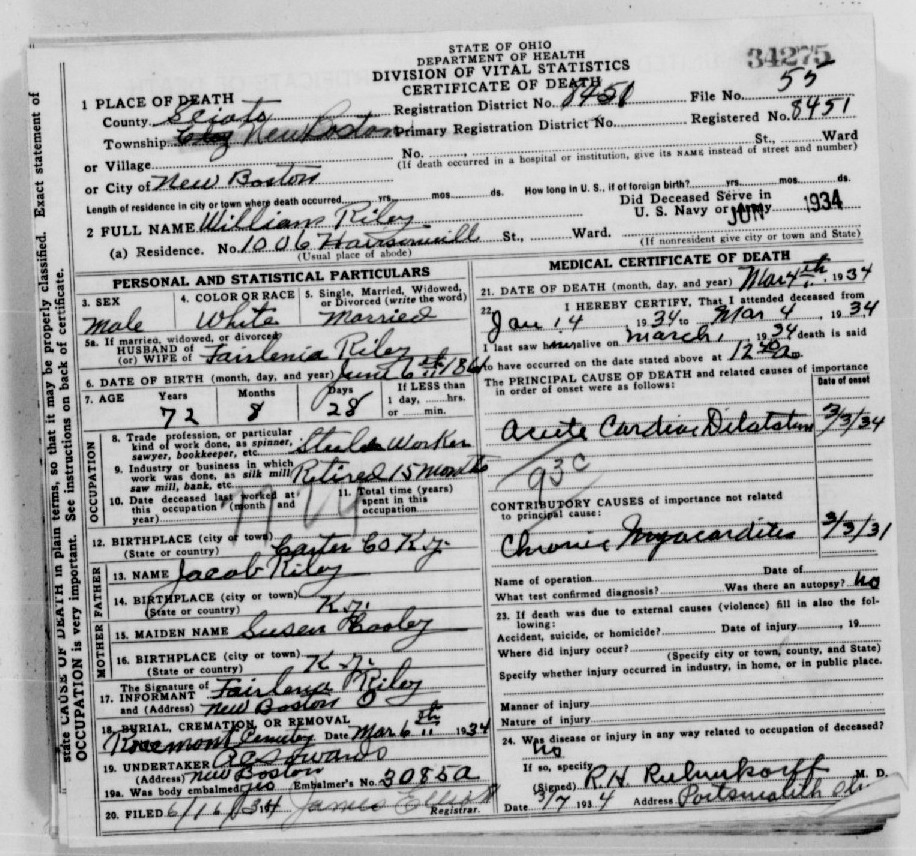 34275
STATE OF OHIO
DEPARTMENT OF HEALTH
DIVISION OF VITAL STATISTICS
CERTIFICATE OF DEATH
1 PLACE OF DEATH
County Scioto Registration District No. 8451 File No. 55
Township City New Boston Primary Registration District No. Registered No. 8451
or Village No. St., Ward
(If death occurred in a hospital or institution, give its NAME instead of street and number)
or City of New Boston
Length of residence in city or town where death occurred yrs. mos. ds. How long in U. S., if of foreign birth? yrs. mos. ds.
2 FULL NAME William Riley Did Deceased Serve in U. S. Navy or Army JUN 1934
(a) Residence. No. 1006 St., Ward.
(Usual place of abode) (If nonresident give city or town and State)
PERSONAL AND STATISTICAL PARTICULARS
3. SEX 4. COLOR OR RACE 5. Single, Married, Widowed, or Divorced (write the word)
Male White Married
5a. If married, widowed, or divorced
HUSBAND of
(or) WIFE of Fairlenia Riley
6. DATE OF BIRTH (month, day, and year) June 6th 1861
7. AGE Years Months Days If LESS than 1 day, hrs. or min.
72 8 28
OCCUPATION
8. Trade profession, or particular kind of work done, as spinner, sawyer, bookkeeper, etc. Steel Worker
9. Industry or business in which work was done, as silk mill, saw mill, bank, etc. Retired 15 Months
10. Date deceased last worked at this occupation (month and year)
11. Total time (years) spent in this occupation
12. BIRTHPLACE (city or town) Carter Co Ky.
(State or country)
FATHER
13. NAME Jacob Riley
14. BIRTHPLACE (city or town)
(State or country) Ky.
MOTHER
15. MAIDEN NAME Susen
16. BIRTHPLACE (city or town)
(State or country) Ky.
17. The Signature of INFORMANT Fairlenia Riley
and (Address) New Boston O
18. BURIAL, CREMATION, OR REMOVAL
Rosemont Cemetery Date Mar 6th 1934
19. UNDERTAKER
(Address) New Boston
19a. Was body embalmed yes Embalmer's No. 3085a
20. FILED 6/16/1934 James Registrar.
MEDICAL CERTIFICATE OF DEATH
21. DATE OF DEATH (month, day, and year) Mar 4th, 1934
22. I HEREBY CERTIFY, That I attended deceased from
Jan 14 1934 to Mar 4, 1934
I last saw him alive on March 1, 1934 death is said
to have occurred on the date stated above at 12
The PRINCIPAL CAUSE OF DEATH and related causes of importance in order of onset were as follows:
Date of onset
Acute Cardiac Dilatation 3/3/34
93C
CONTRIBUTORY CAUSES of importance not related to principal cause:
Chronic Myocarditis 3/3/31
Name of operation Date of
What test confirmed diagnosis? Was there an autopsy? No
23. If death was due to external causes (violence) fill in also the following:
Accident, suicide, or homicide? Date of injury , 19
Where did injury occur?
(Specify city or town, county, and State)
Specify whether injury occurred in industry, in home, or in public place.
Manner of injury
Nature of injury
24. Was disease or injury in any way related to occupation of deceased?
No
If so, specify
(Signed) M. D.
Date 3/7 1934 Address Portsmouth Ohio
state CAUSE OF DEATH in plain terms, so that it may be properly classified. Exact statement of
OCCUPATION is very important. See instructions on back of certificate.